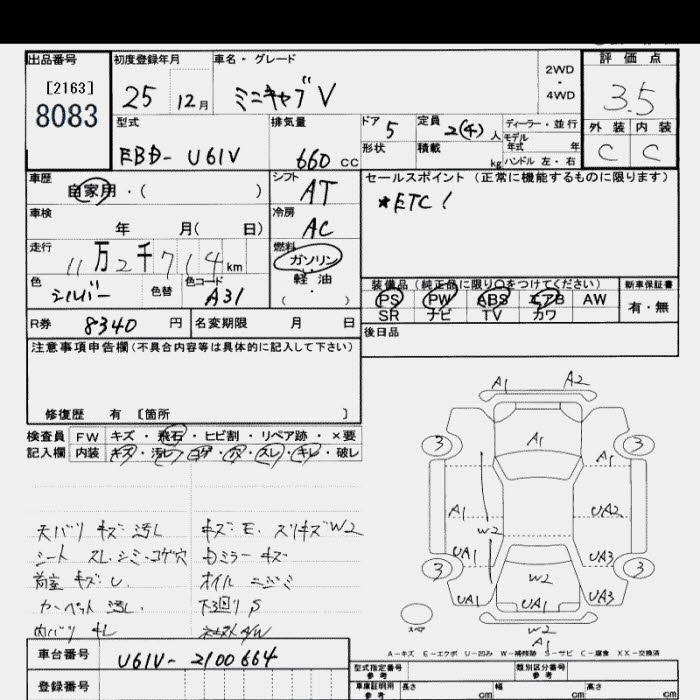 出品番号
[2163]
8083
初度登録年月
25 12月
車名・グレード
ミニキャブV
2WD
・
4WD
評価点
3.5
外装 内装
C C
型式
EBD- U61V
排気量
660 CC
ドア 5
形状
定員 2(4) 人
積載 kg
ディーラー・並行
モデル
年式 年
ハンドル 左・右
車歴
自家用・( )
シフト
AT
セールスポイント (正常に機能するものに限ります)
*ETC!
車検
年 月( 日)
冷房
AC
走行
11万2千714km
燃料
ガソリン
軽油
( ・ )
色
シルバー
色替
色コード
A31
装備品(純正品に限り○をつけてください)
PS PW ABS エアB AW
SR ナビ TV カワ
新車保証書
有・無
R券 8340 円
名変期限 月 日
後日品
注意事項申告欄(不具合内容等は具体的に記入して下さい)
修復歴 有 [箇所 ]
検査員 FW キズ・飛石・ヒビ割・リペア跡・×要
記入欄 内装 キズ・汚レ・コゲ・穴・スレ・キレ・破レ
天バリ キズ 汚レ
シート スレ・シミ・コゲ穴
荷室 キズ U.
カーペット 汚レ.
内バリ キレ
キズ・E. スリキズW2
ミラー キズ
オイル ニジミ
下回り S
A1 A2
3 A1 3
A1 A1 UA2
W2
3 UA1 UA3 3
W2
UA1 UA1 UA3
W2
A1
スペア
A-キズ E-エクボ U-凹み W-補修跡 S-サビ C-腐食 XX-交換済
車台番号 U61V- 2100664
登録番号
型式指定番号
参考
類別区分番号
参考
車庫証明用
参考
長さ cm 幅 cm 高さ cm